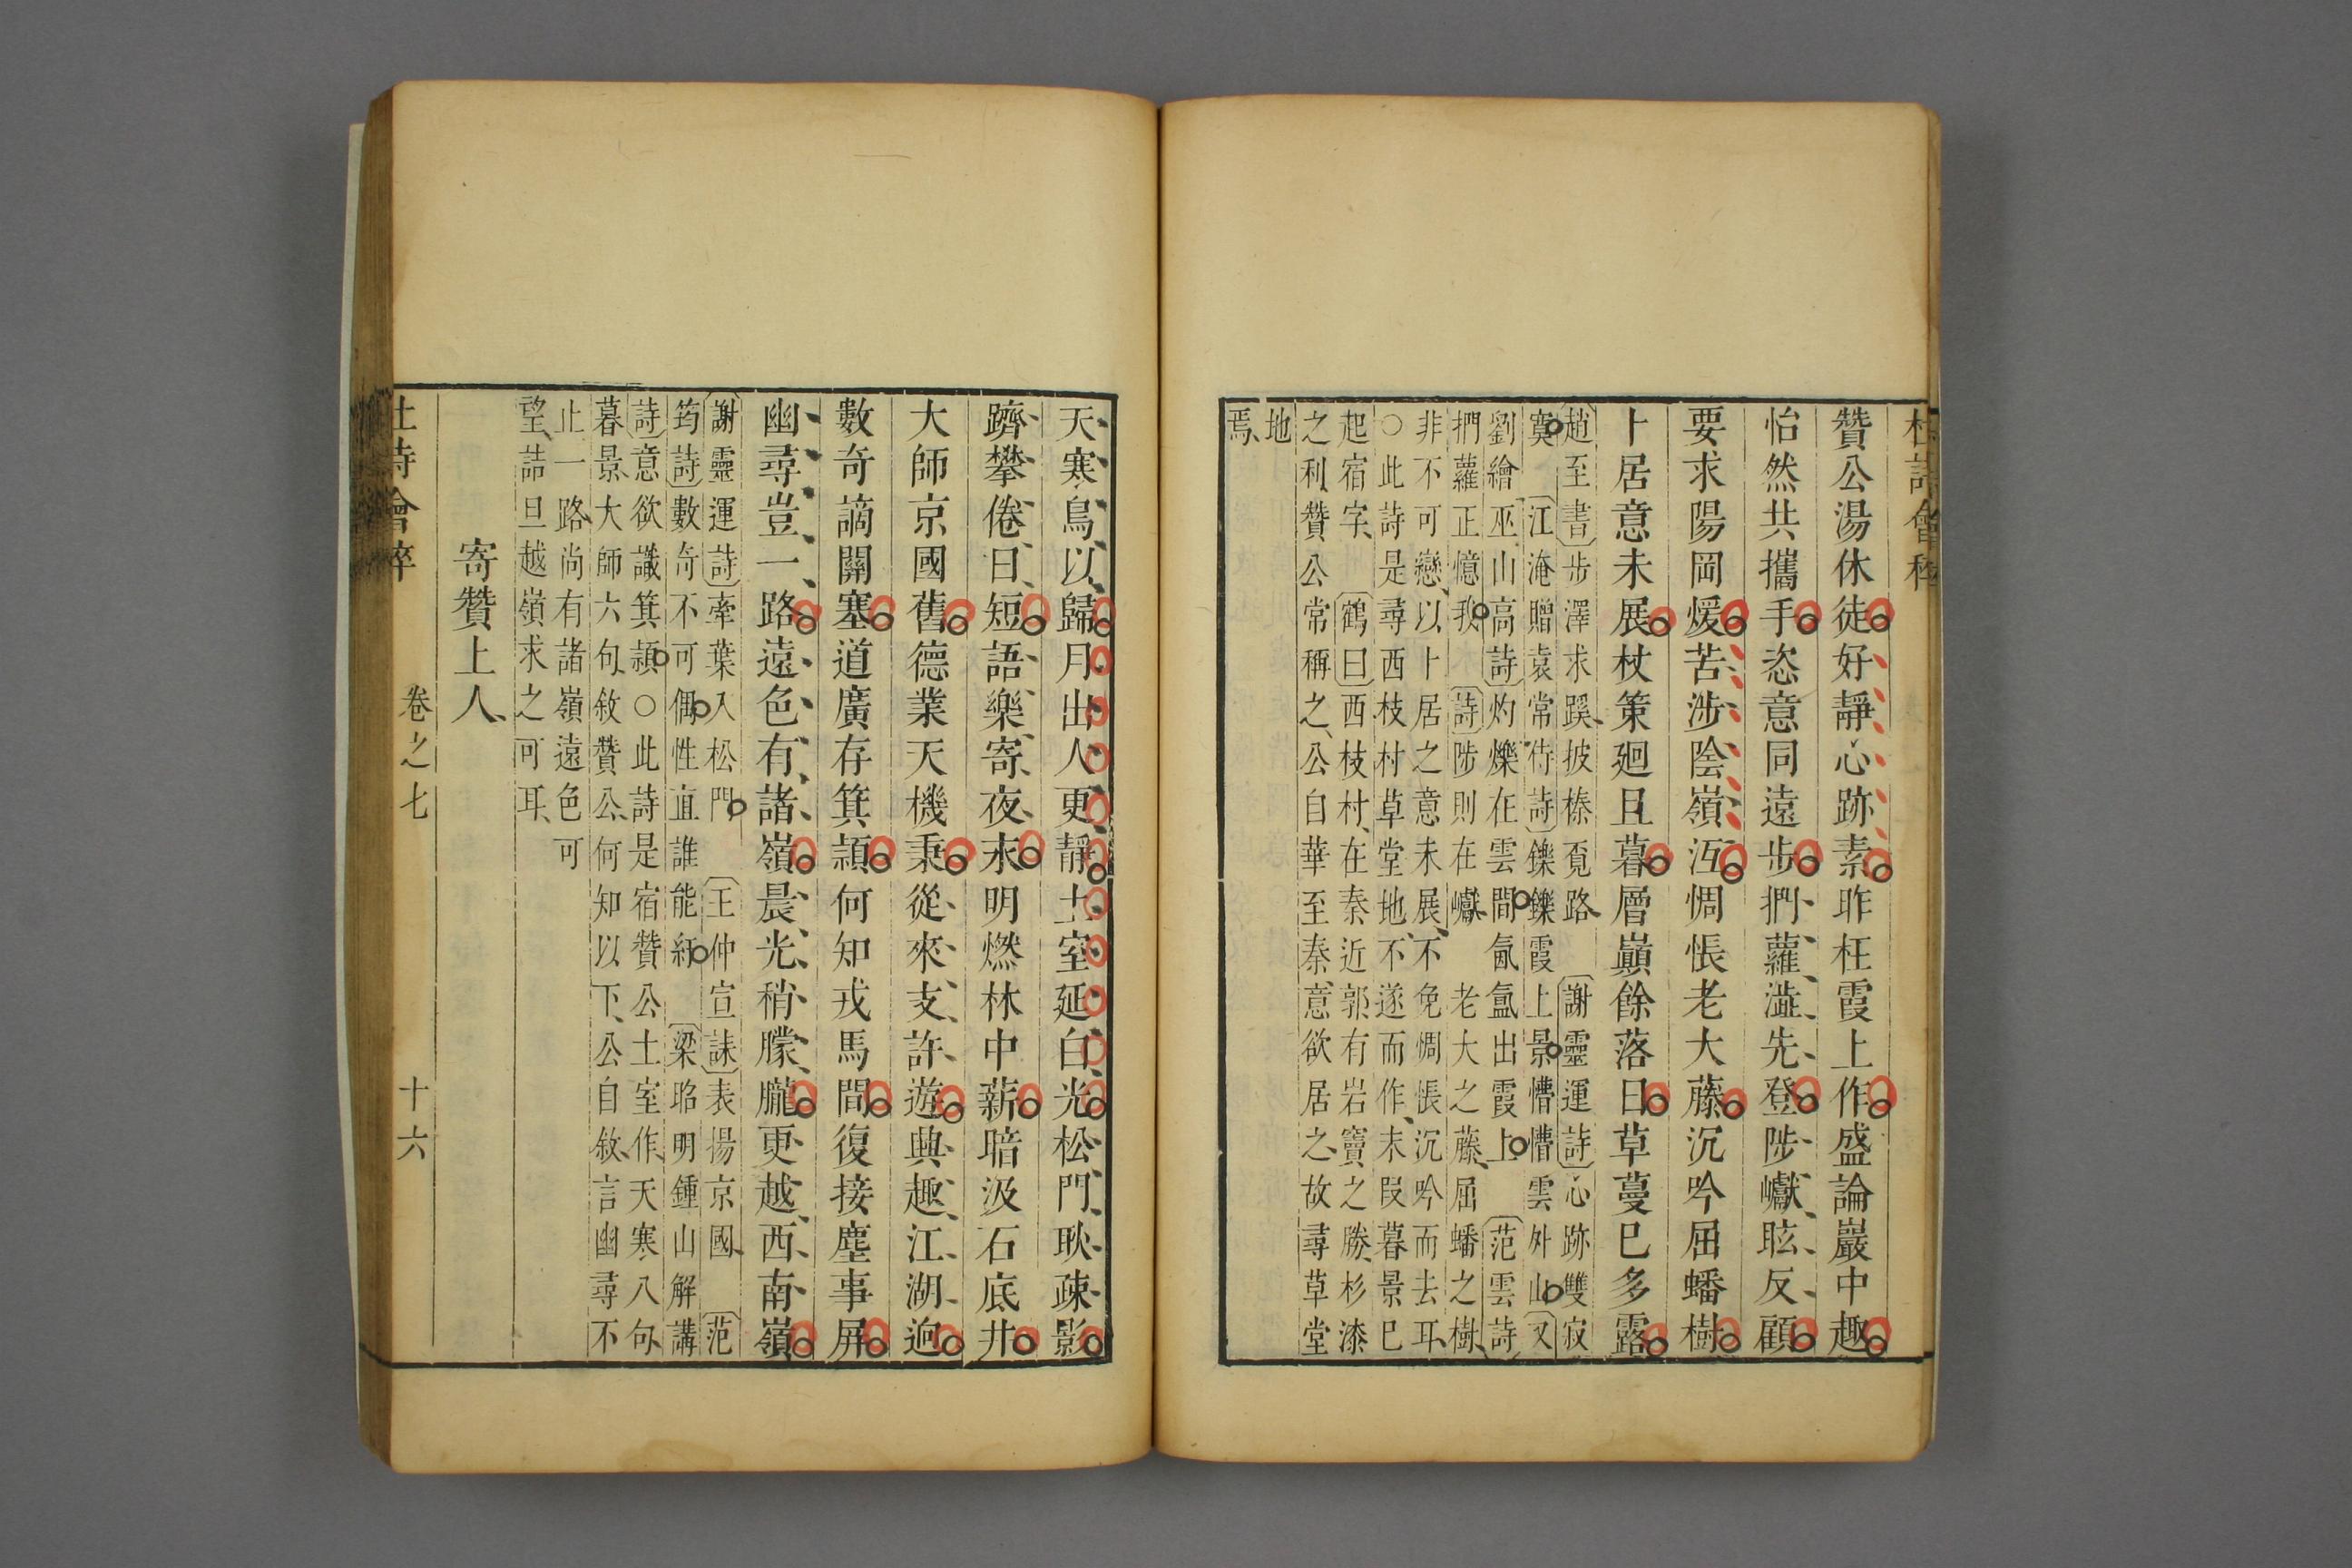 杜詩會稡
贊公湯休徒好靜心跡素昨枉霞上作盛論巖中趣
怡然共攜手恣意同遠步捫蘿澁先登陟巘眩反顧
要求陽岡煖苦涉陰嶺沍惆悵老大藤沉吟屈蟠樹
卜居意未展杖策廻且暮層巔餘落日草蔓巳多露
趙至書步澤求蹊披榛覔路 謝靈運詩心跡雙寂
寞 江淹贈袁常侍詩鑠鑠霞上景懵懵雲外山 又
劉繪巫山高詩灼爍在雲間氤氳出霞上 范雲詩
捫蘿正憶我 詩陟則在巘 老大之藤屈蟠之樹
非不可戀以卜居之意未展不免惆悵沉吟而去耳
○此詩是尋西枝村草堂地不遂而作末叚暮景巳
起宿字 鶴曰西枝村在秦近郭有岩竇之勝杉漆
之利贊公常稱之公自華至秦意欲居之故尋草堂
地
焉
天寒鳥以歸月出人更靜土室延白光松門耿疎影
躋攀倦日短語樂寄夜永明燃林中薪暗汲石底井
大師京國舊德業天機秉從來支許遊典趣江湖逈
數奇謫關塞道廣存箕頴何知戎馬間復接塵事屏
幽尋豈一路遠色有諸嶺晨光稍朦朧更越西南嶺
謝靈運詩牽葉入松門 王仲宣誄表揚京國 范
筠詩數奇不可偶性直誰能紆 梁昭明鍾山解講
詩意欲識箕頴○此詩是宿贊公土室作天寒八句
暮景大師六句敘贊公何知以下公自敘言幽尋不
止一路尚有諸嶺遠色可
望詰旦越嶺求之可耳
寄贊上人
杜詩會稡 卷之七 十六